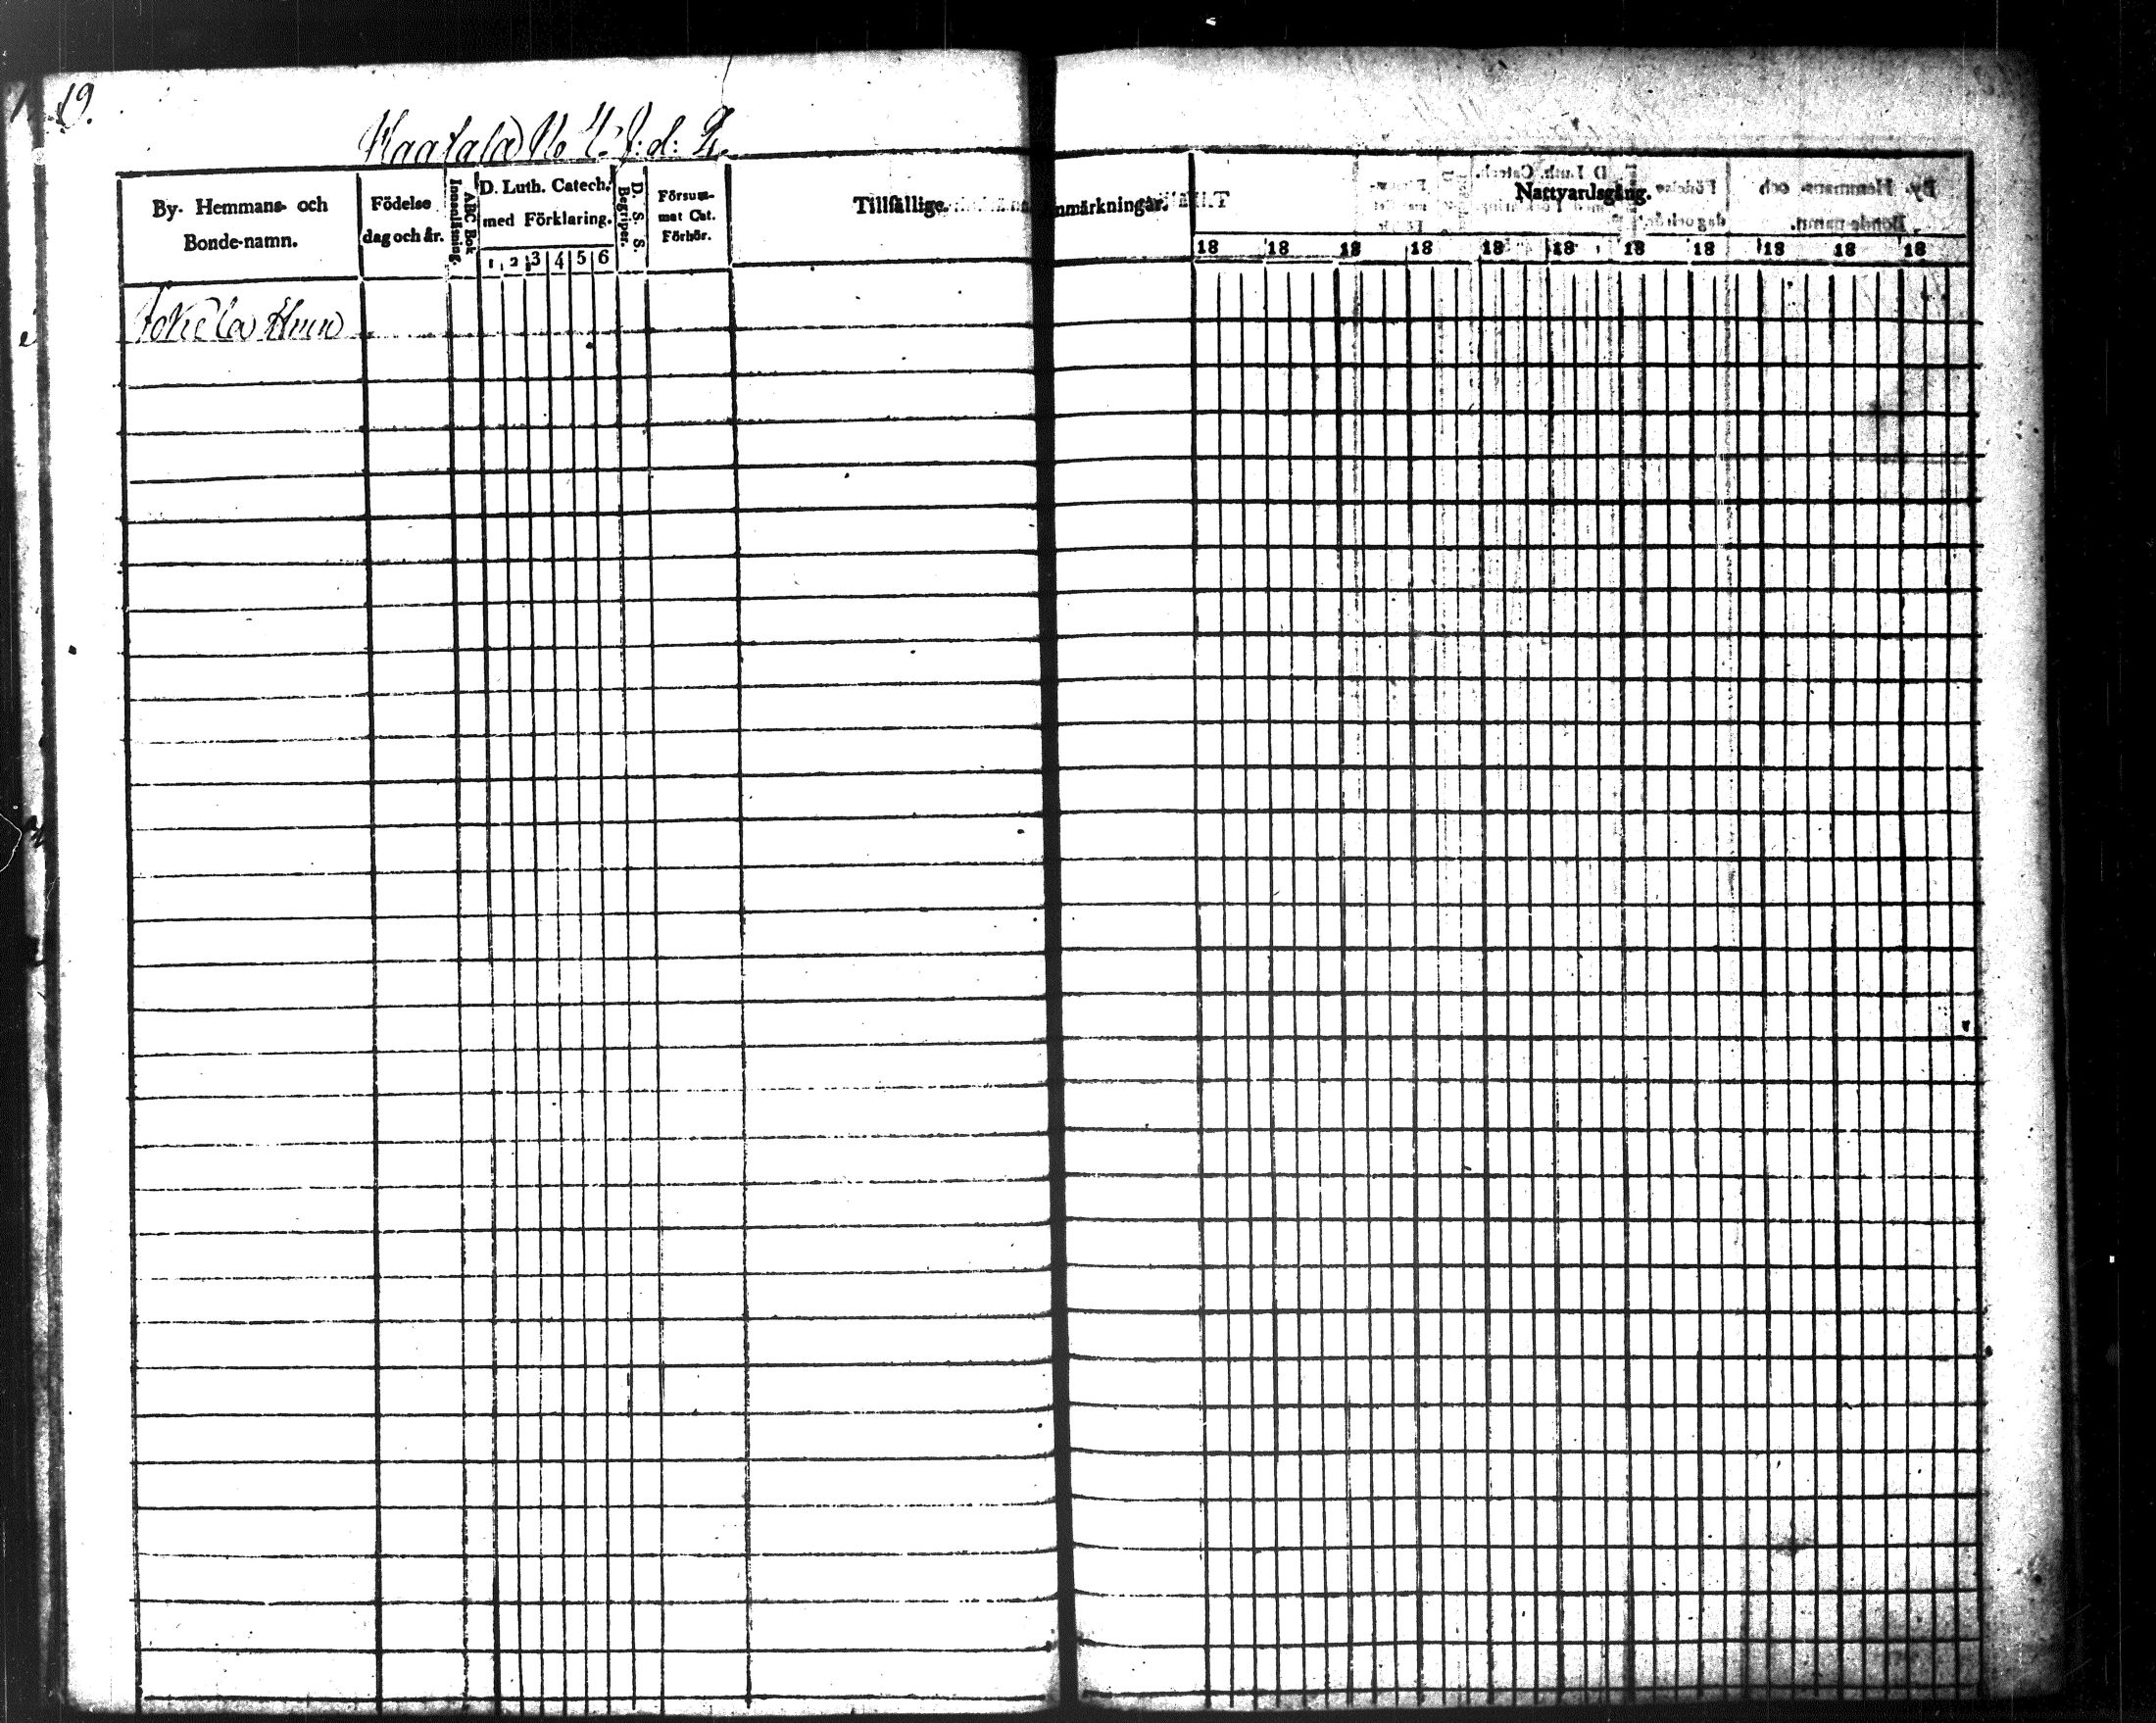 19.
Kaatala No 4. J:d: 2.
By- Hemmans- och Bonde-namn.
Födelse dag och år.
ABC Bok Innanläsning.
D. Luth. Catech. med Förklaring.
1 2 3 4 5 6
D. S. S. Begriper.
Försummat Cat. Förhör.
Tillfällige Anmärkningar.
Nattvardsgång.
18 18 18 18 18 18 18 18 18 18 18
Jokela